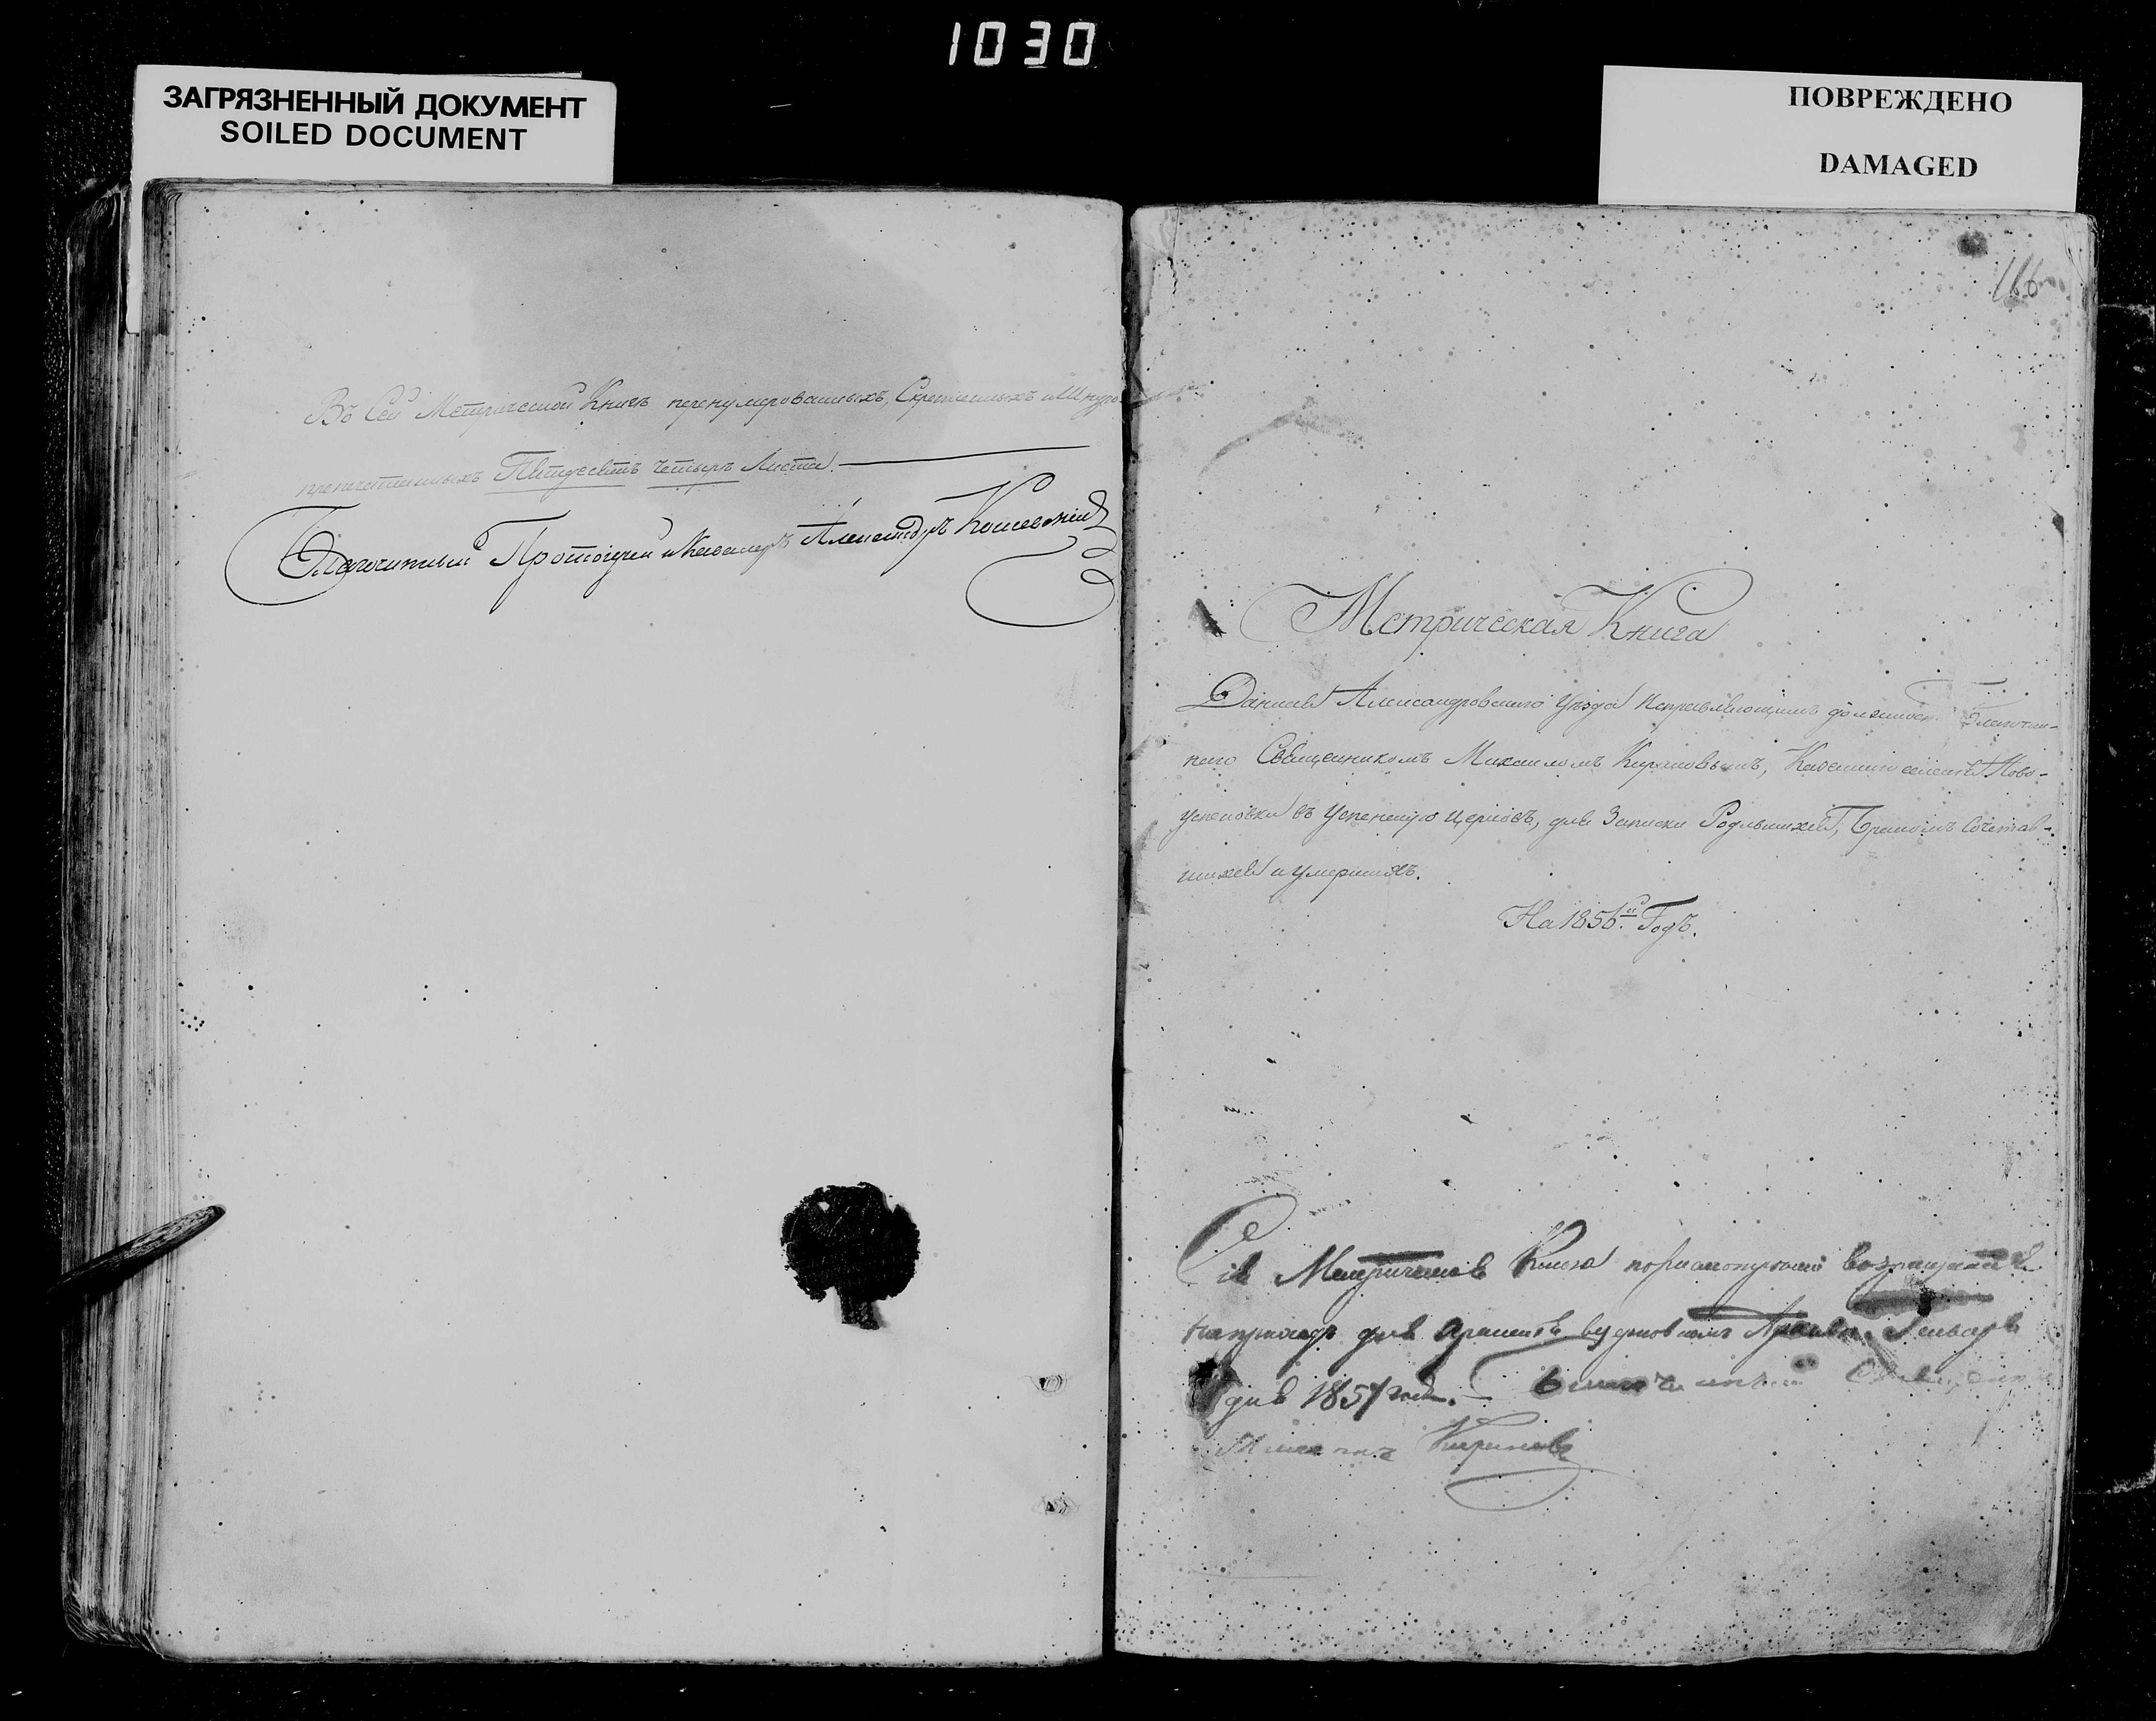 1030
ЗАГРЯЗНЕННЫЙ ДОКУМЕНТ
SOILED DOCUMENT
ПОВРЕЖДЕНО
DAMAGED
166
Въ Сей Метрической Книгѣ перенумерованныхъ, Скрепленныхъ и Шнуро
препечатанныхъ Пятдесятъ четыре Листа.
Благочинный Протоіерей и Кавалеръ Александръ
Метрическая Книга
Данная Александровскаго Уѣзда Исправляющимъ должност Благочин-
наго Священникомъ Михаиломъ Кираковымъ, Казеннаго селенія Ново-
успеновки въ Успенскую Церковь, для Записки Родившихся, Бракомъ Сочетав-
шихся и умершихъ.
На 1856й Годъ.
Сія Метрическая Книга возвращается
для храненія въ церковномъ Архивѣ. Генваря
дня 1857 года. Благочинный Священник
Михаилъ